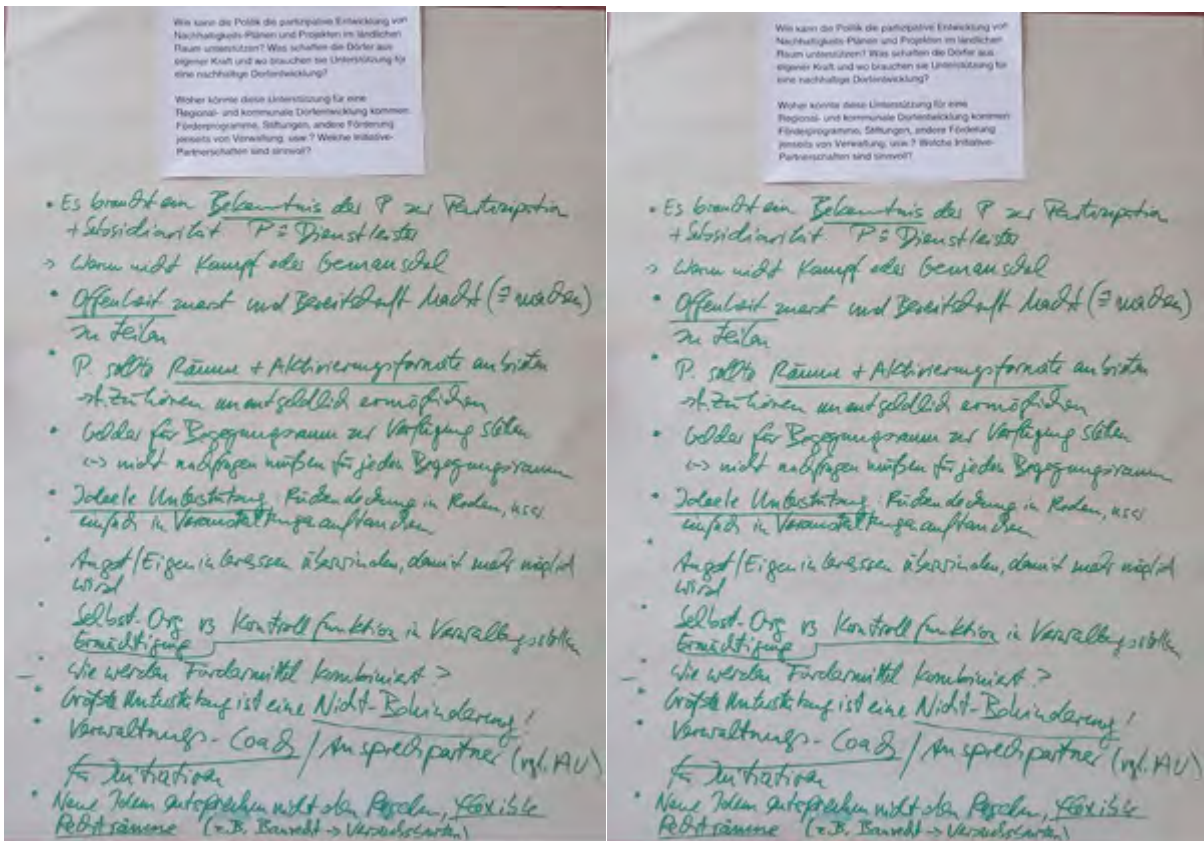 Wie kann die Politik die partizipative Entwicklung von
Nachhaltigkeits-Plänen und Projekten im ländlichen
Raum unterstützen? Was schaffen die Dörfer aus
eigener Kraft und wo brauchen sie Unterstützung für
eine nachhaltige Dorfentwicklung?
Woher könnte diese Unterstützung für eine
Regional- und kommunale Dorfentwicklung kommen
Förderprogramme, Stiftungen, andere Förderung
jenseits von Verwaltung, usw.? Welche Initiative-
Partnerschaften sind sinnvoll?
• Es braucht ein Bekenntnis der P zur Partizipation
+ Subsidiarität P ≙ Dienstleister
> Wann nicht Kampf oder
• Offenheit zuerst und Bereitschaft Macht (≙ machen)
zu teilen
• P. sollte Räume + Aktivierungsformate anbieten
zuhören unentgeldlich ermöglichen
• Gelder für Begegnungsraum zur Verfügung stellen
<-> nicht nachfragen müßen für jeden Begegnungsraum
• Ideele Unterstützung: Rückendeckung in Reden, usw.
einfach in Veranstaltungen auftauchen
• Angst/Eigeninteressen überwinden, damit mehr möglich
wird
• Selbst-Org vs Kontrollfunktion in Verwaltungsstellen
Ermächtigung
– Wie werden Fördermittel kombiniert?
• Größte Unterstützung ist eine Nicht-Behinderung!
• Verwaltungs-Coach / Ansprechpartner (vgl. AU)
für Initiativen
• Neue Ideen entsprechen nicht den Regeln, flexible
Rechtsräume (z.B. Baurecht ->
Wie kann die Politik die partizipative Entwicklung von
Nachhaltigkeits-Plänen und Projekten im ländlichen
Raum unterstützen? Was schaffen die Dörfer aus
eigener Kraft und wo brauchen sie Unterstützung für
eine nachhaltige Dorfentwicklung?
Woher könnte diese Unterstützung für eine
Regional- und kommunale Dorfentwicklung kommen
Förderprogramme, Stiftungen, andere Förderung
jenseits von Verwaltung, usw.? Welche Initiative-
Partnerschaften sind sinnvoll?
• Es braucht ein Bekenntnis der P zur Partizipation
+ Subsidiarität P ≙ Dienstleister
> Wann nicht Kampf oder
• Offenheit zuerst und Bereitschaft Macht (≙ machen)
zu teilen
• P. sollte Räume + Aktivierungsformate anbieten
zuhören unentgeldlich ermöglichen
• Gelder für Begegnungsraum zur Verfügung stellen
<-> nicht nachfragen müßen für jeden Begegnungsraum
• Ideele Unterstützung: Rückendeckung in Reden, usw.
einfach in Veranstaltungen auftauchen
• Angst/Eigeninteressen überwinden, damit mehr möglich
wird
• Selbst-Org vs Kontrollfunktion in Verwaltungsstellen
Ermächtigung
– Wie werden Fördermittel kombiniert?
• Größte Unterstützung ist eine Nicht-Behinderung!
• Verwaltungs-Coach / Ansprechpartner (vgl. AU)
für Initiativen
• Neue Ideen entsprechen nicht den Regeln, flexible
Rechtsräume (z.B. Baurecht ->